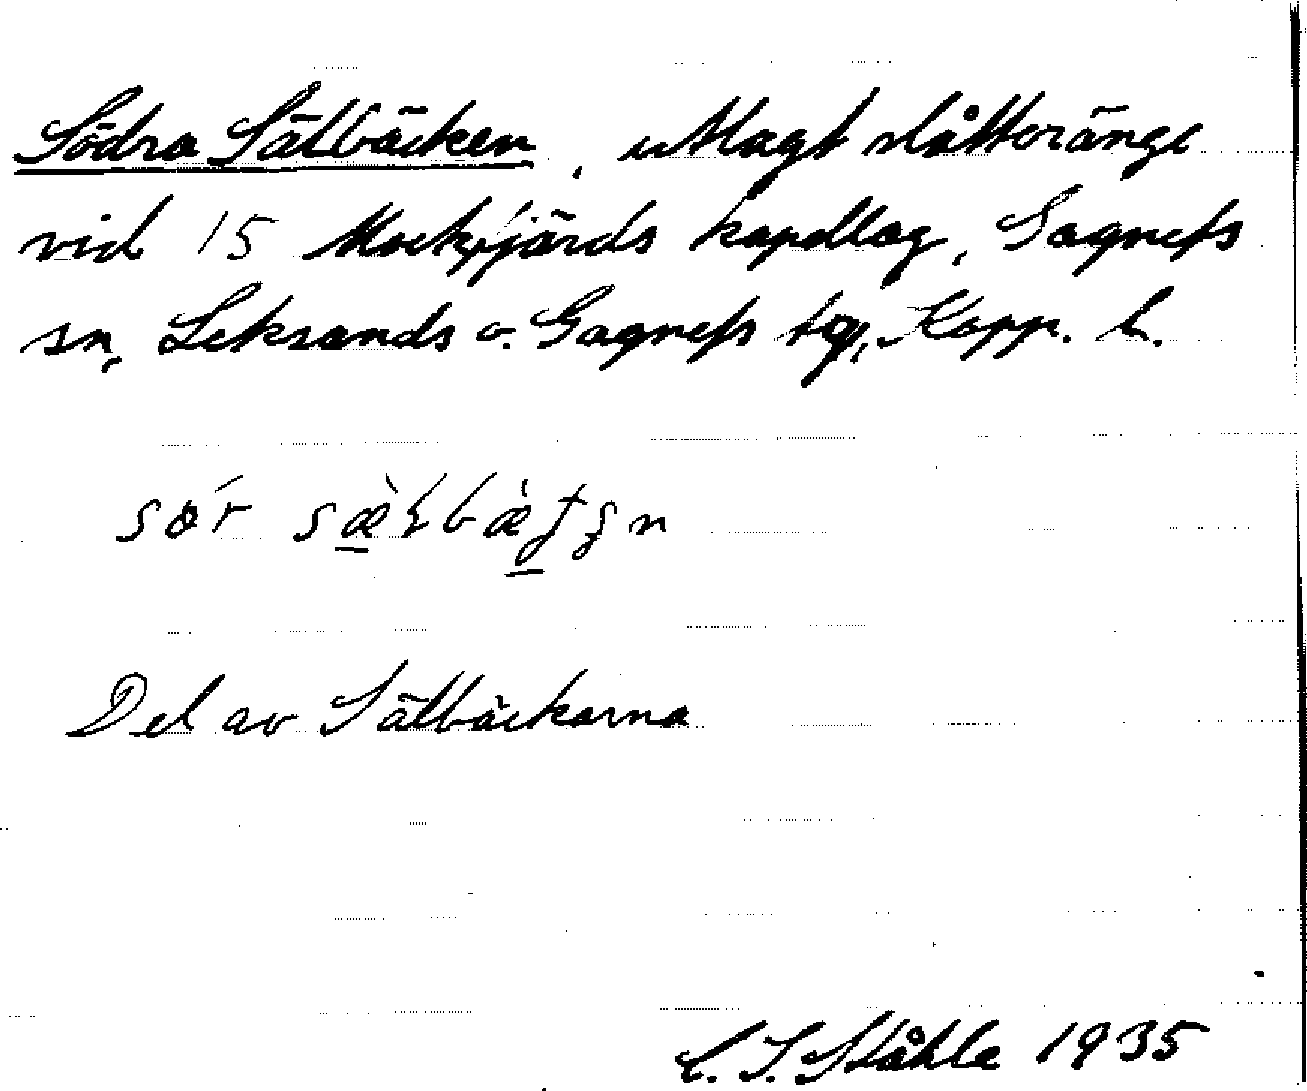 Södra Sätbäcken, utlagt slåtteränge
vid 15 Mockfjärds kapellag, Gagnefs
sn, Leksands o. Gagnefs tg, Kopp. l.
Del av Sätbäckarna
C. I. Ståhle 1935